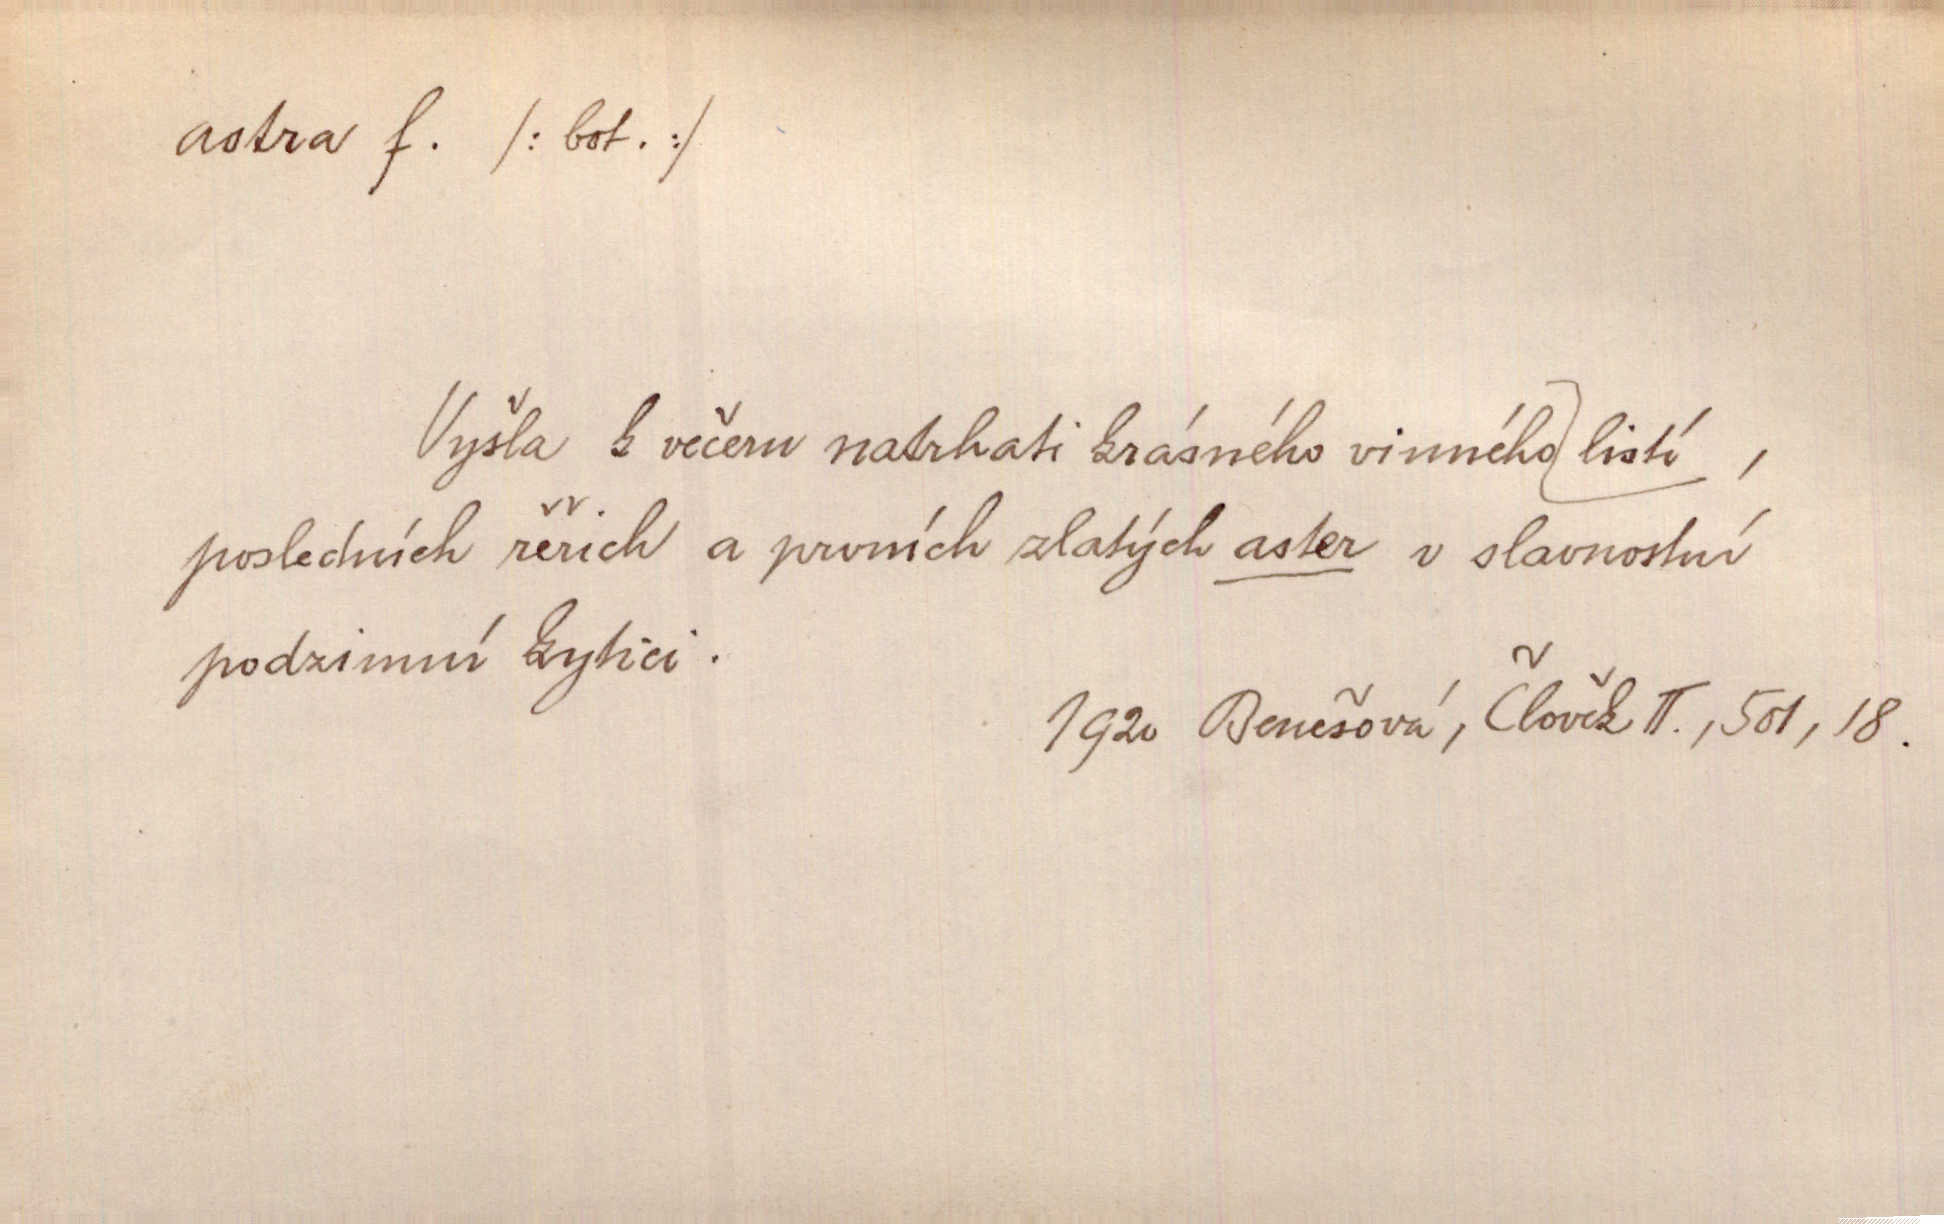 astra f. /: bot. :/
Vyšla k večeru natrhati krásného vinného listí,
posledních řeřich a prvních zlatých aster v slavnostní
podzimní kytici.
1920 Benešová, Člověk II., 501, 18.